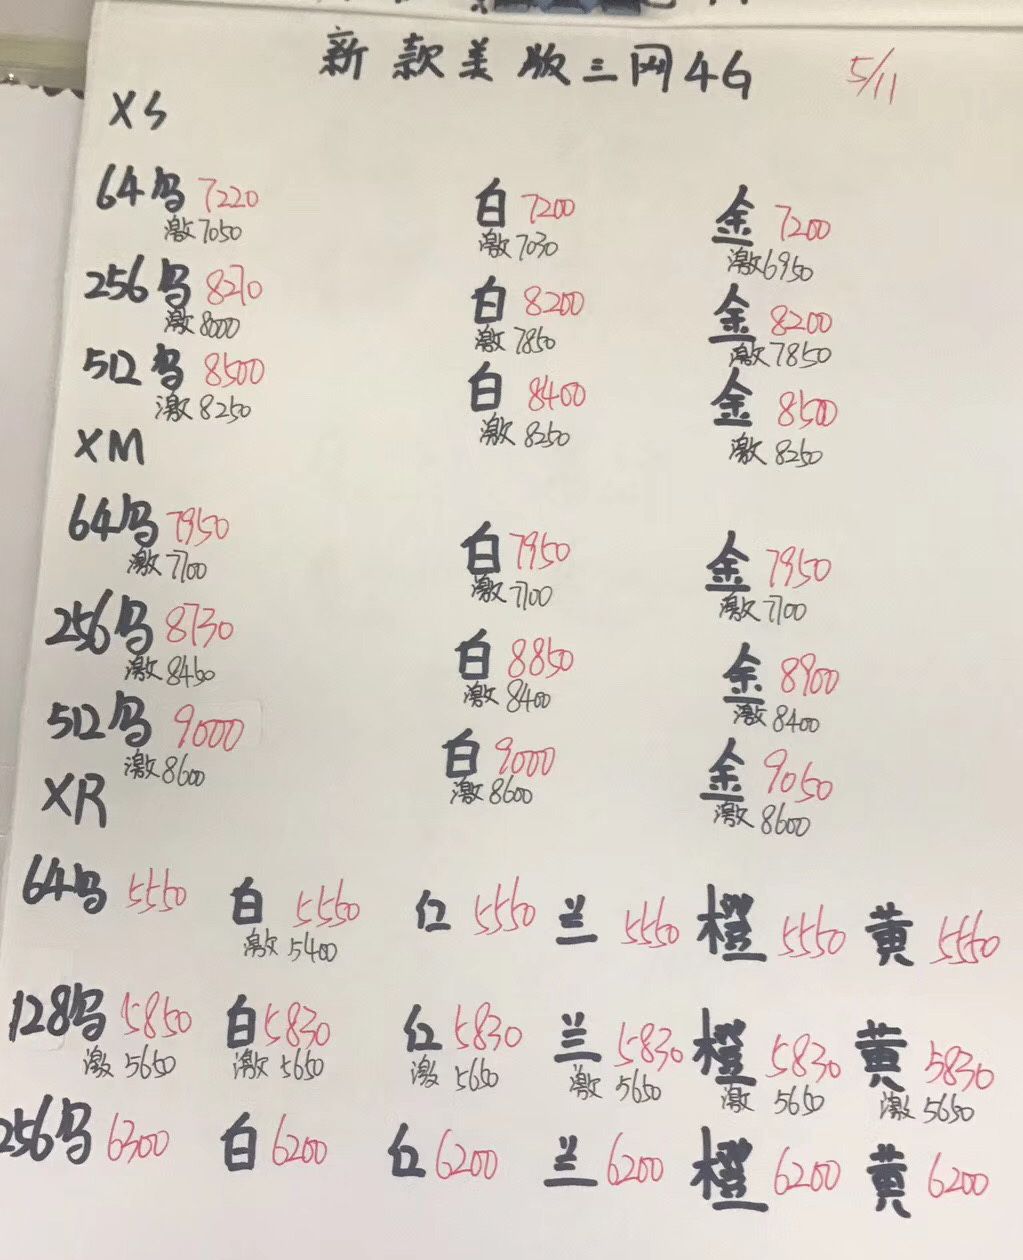 新款美版三网4G 5/11
XS
64乌 7220 白 7200 金 7200
激7050 激7030 激6950
256乌 8210 白 8200 金 8200
激8000 激7850 激7850
512乌 8500 白 8400 金 8500
激8250 激8250 激8250
XM
64乌 7950 白 7950 金 7950
激7700 激7700 激7700
256乌 8730 白 8850 金 8900
激8450 激8400 激8400
512乌 9000 白 9000 金 9050
激8600 激8600 激8600
XR
64乌 5550 白 5550 红 5550 兰 5550 橙 5550 黄 5550
激5400
128乌 5850 白 5830 红 5830 兰 5830 橙 5830 黄 5830
激5650 激5650 激5650 激5650 激5650 激5650
256乌 6300 白 6200 红 6200 兰 6200 橙 6200 黄 6200